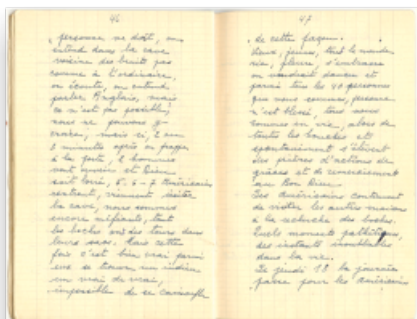 46
personne ne dort, on
entend dans la cave
voisine des bruits pas
comme à l'ordinaire,
on écoute, on entend
parler Anglais, mais
ce n'est pas possible,
nous ne pouvons y
croire, mais si, 2 ou
3 minutes après on frappe
à la porte, 2 hommes
vont ouvrir et Dieu
soit loué, 5, 6 - 7 Américains
rentrent, viennent visiter
la cave, nous sommes
encore méfiants, tant
les boches ont des tours dans
leurs sacs. Mais cette
fois c'est bien vrai parmi
eux se trouve un indien
un vrai de vrai,
impossible de se camoufler
47
de cette façon.
Vieux, jeunes, tout le monde
rie, pleure, s'embrasse
on voudrait danser et
parmi tous les 40 personnes
que nous sommes, personne
n'est blessé, tous nous
sommes en vie, alors de
toutes les bouches et
spontanément s'élèvent
des prières d'actions de
grâces et de remerciement
au Bon Dieu.
Les américains continuent
de visiter les autres maisons
à la recherche des boches.
Quels moments pathétiques,
des instants inoubliables
dans la vie.
Le jeudi 18 la journée
passe pour les américains